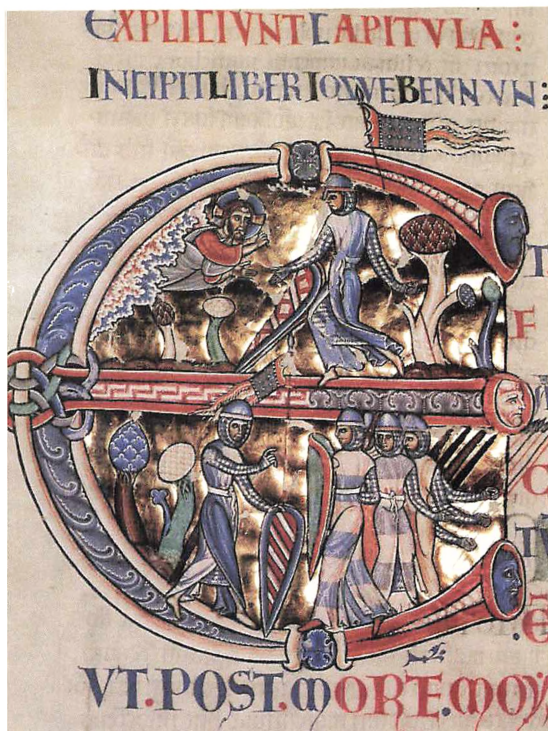 EXPLICIVNT CAPITVLA:
INCIPIT LIBER IOSVE BENNVN:
E
T
F
VT.POST.MORTE.MOY